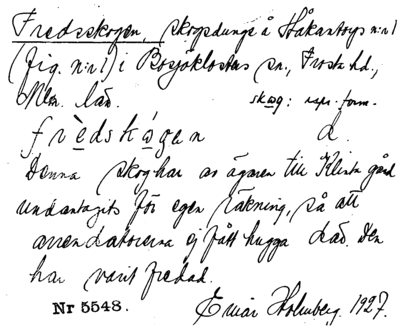 Fredskogen, skogsdunge å Håkantorps n:r 1
(fig. n:r 1) i Bosjöklosters sn., Frosta hd.,
Mlm. län. skog: repr. form.
frèdskå̀gen d.
Denna skog har av ägaren till Klinta gård
undantagits för egen räkning, så att
arrendatorerna ej fått hugga där. Den
har varit fredad.
Nr 5548. Einar Holmberg. 1927.